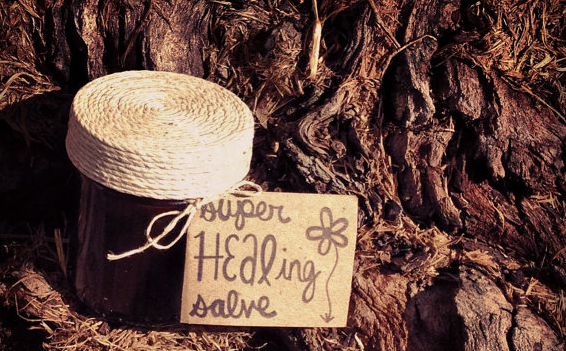 super
HEAling
salve